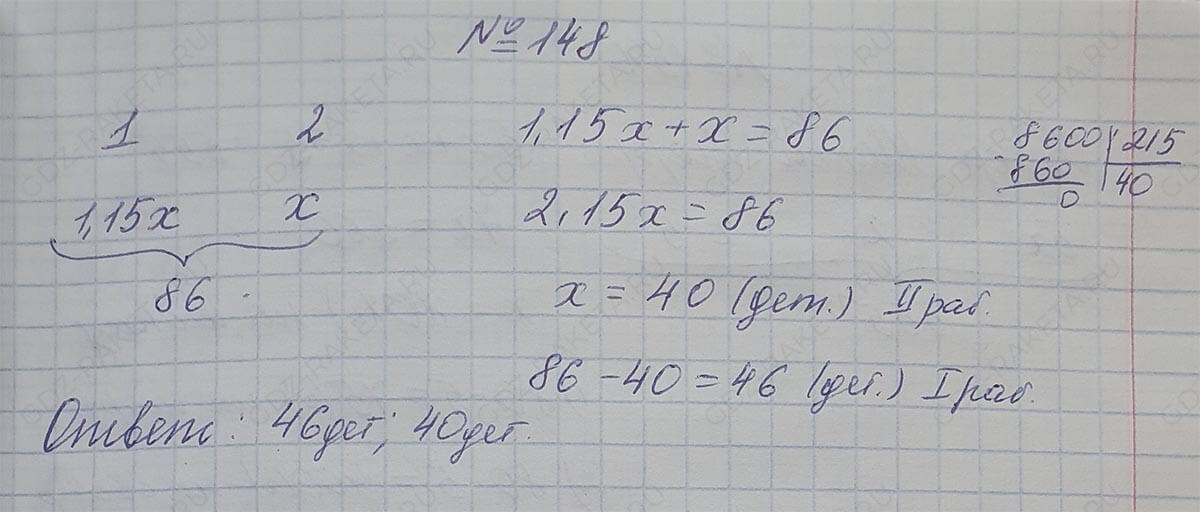 № 148
1 2
1,15x x
86
1,15x + x = 86
2,15x = 86
x = 40 (дет.) II раб.
86 - 40 = 46 (дет.) I раб.
8600 | 215
- 860 | 40
0
Ответ: 46 дет; 40 дет.
GDZ-RAKETA.RU